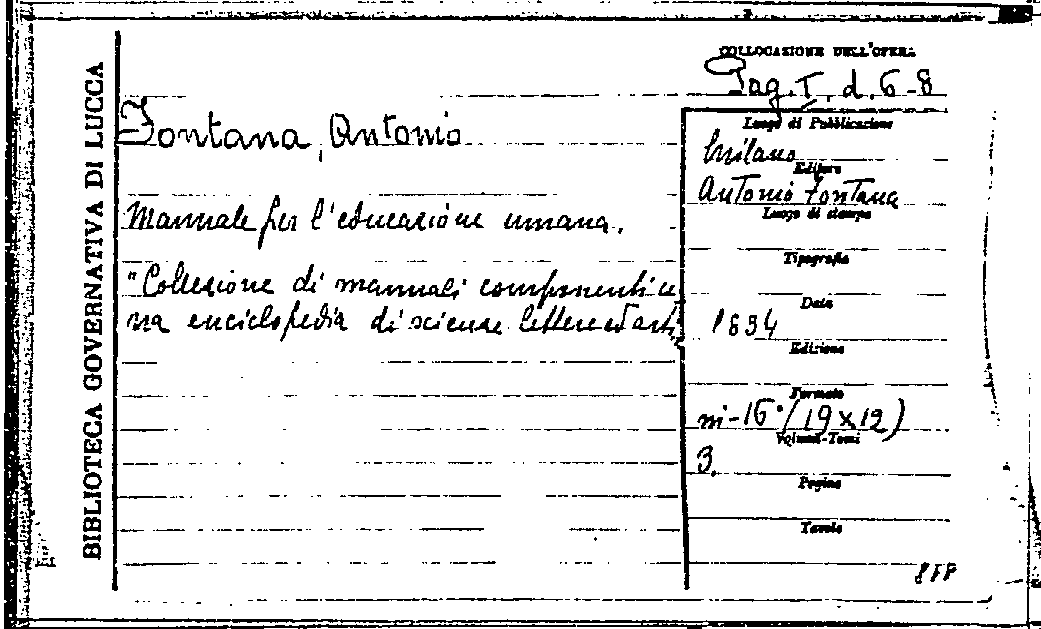 BIBLIOTECA GOVERNATIVA DI LUCCA
COLLOCAZIONE DELL'OPERA
Pag. I. d. 6-8
Fontana, Antonio
Manuale per l'educazione umana.
"Collezione di manuali componenti u
na enciclopedia di scienze lettere ed arti
Luogo di Pubblicazione
Milano
Editore
Antonio Fontana
Luogo di stampa
Tipografia
Data
1834
Edizione
Formato
in-16° (19x12)
Volumi-Tomi
3.
Pagine
Tavole